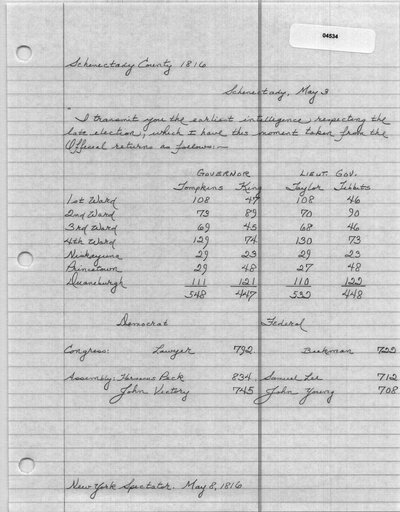 04534
Schenectady County 1816
Schenectady, May 3
"I transmit you the earliest intelligence, respecting the
late election, which I have this moment taken from the
Official returns as follows:—
GOVERNOR LIEUT. GOV.
Tompkins King Taylor Tibbits
1st Ward 108 47 108 46
2nd Ward 73 89 70 90
3rd Ward 69 45 68 46
4th Ward 129 74 130 73
Niskayuna 29 23 29 23
Princetown 29 48 27 48
Duanesburgh 111 121 110 122
548 447 532 448
Democrat Federal
Congress: Lawyer 792 Beekman 722
Assembly: Harmanus Peek 834 Samuel Lee 712
John Victory 745 John Young 708
New York Spectator. May 8, 1816